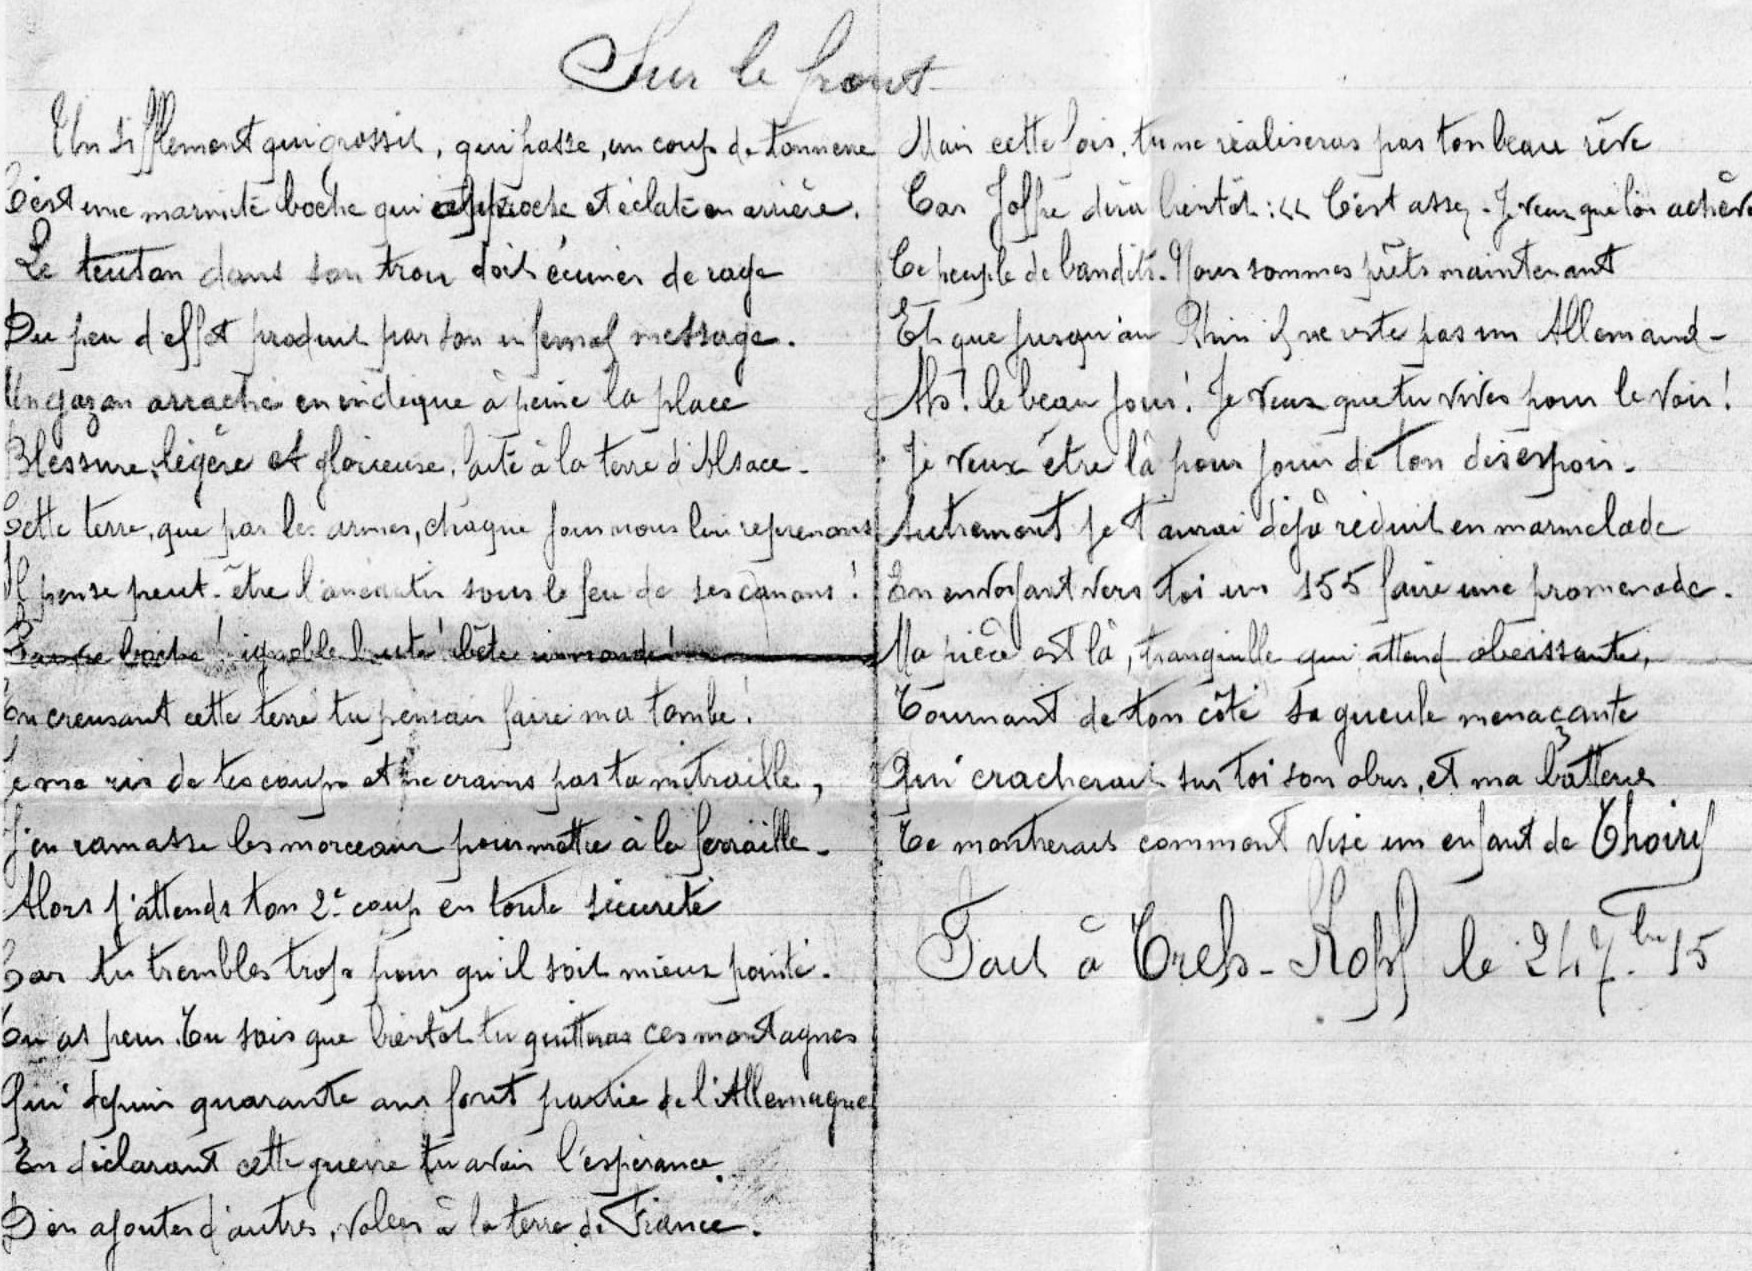 Sur le front
Un sifflement qui grossit, qui passe, un coup de tonnerre
C'est une marmite boche qui approche et éclate en arrière.
Le teuton dans son trou doit écumer de rage
Du peu d'effet produit par son infernal message.
Un gazon arraché en indique à peine la place
Blessure légère et glorieuse, faite à la terre d'Alsace.
Cette terre, que par les armes, chaque jour nous lui reprenons
Il pense peut-être l'anéantir sous le feu de ses canons !
Pauvre boche ! ignoble brute ! bête immonde !
En creusant cette terre tu pensais faire ma tombe !
Je me ris de tes coups et ne crains pas ta mitraille,
J'en ramasse les morceaux pour mettre à la ferraille.
Alors j'attends ton 2e coup en toute sécurité
Car tu trembles trop pour qu'il soit mieux pointé.
Tu as peur. Tu sais que bientôt tu quitteras ces montagnes
Qui depuis quarante ans font partie de l'Allemagne
En déclarant cette guerre tu avais l'espérance
D'en ajouter d'autres, volées à la terre de France.
Mais cette fois, tu ne réaliseras pas ton beau rêve
Car Joffre dira bientôt : << C'est assez - Je veux que l'on achève
Ce peuple de bandits. Nous sommes prêts maintenant
Et que jusqu'au Rhin il ne reste pas un Allemand -
Ah ! le beau jour ! Je veux que tu vives pour le voir !
Je veux être là pour jouir de ton désespoir.
Autrement je t'aurai déjà réduit en marmelade
En envoyant vers toi un 155 faire une promenade.
Ma pièce est là, tranquille qui attend obeissante,
Tournant de ton côté sa gueule menaçante
Qui cracherait sur toi son obus, et ma batterie
Te montrerais comment vise un enfant de Thoiry
Fait à Treh-Kopf le 24 7bre 15